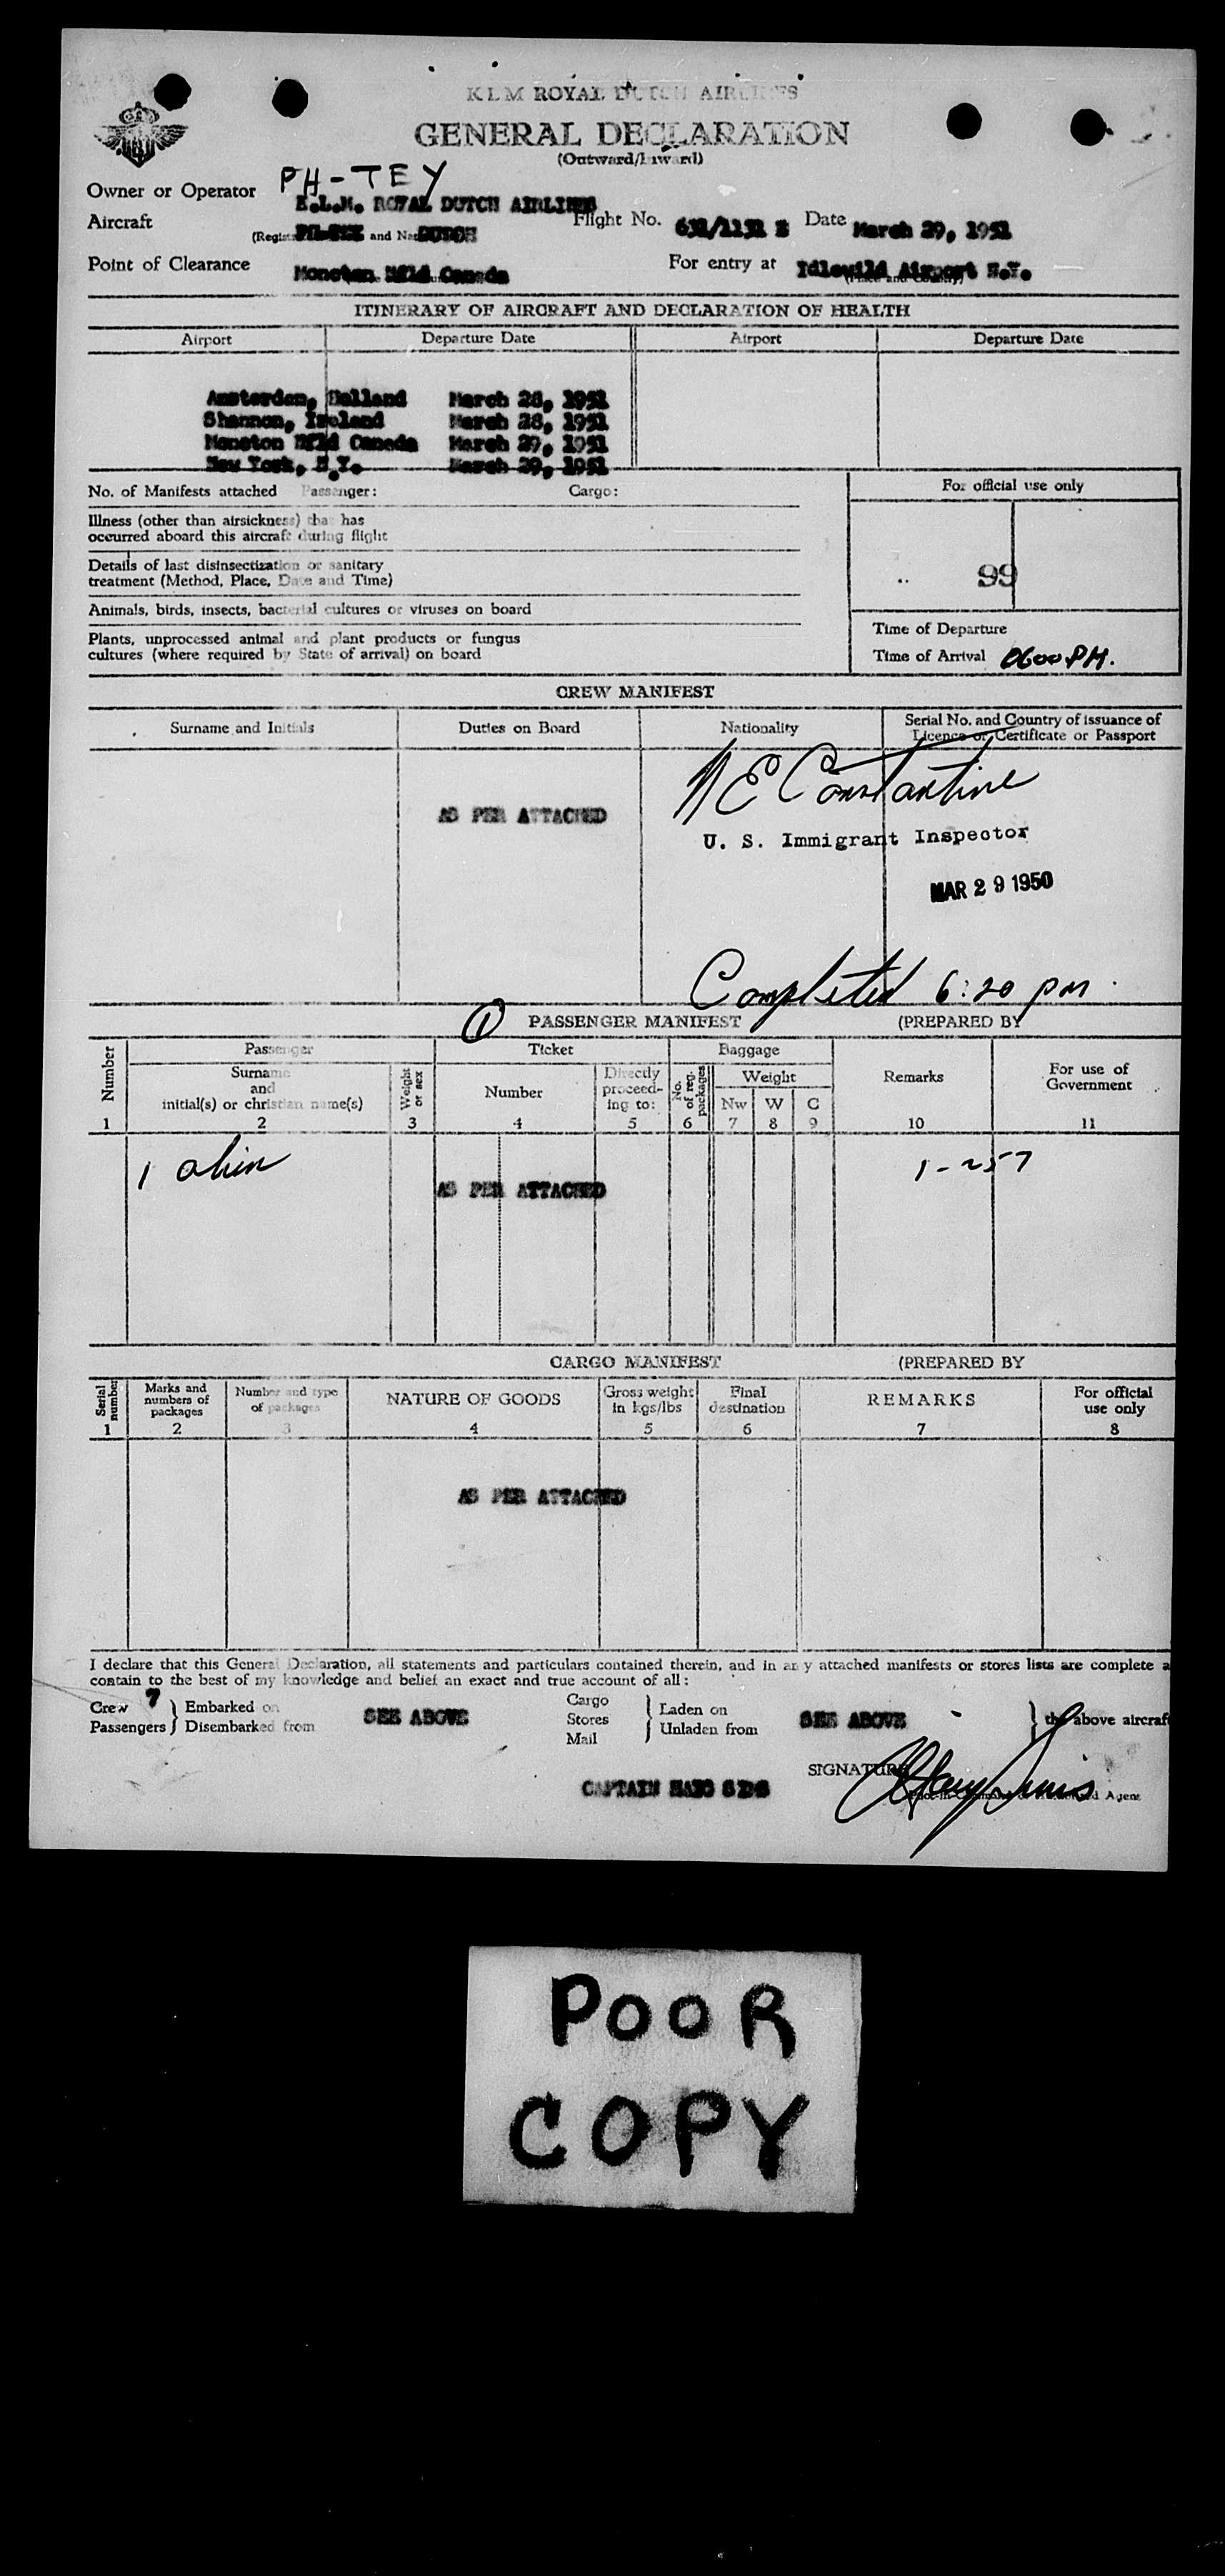 K L M ROYAL DUTCH AIRLINES
GENERAL DECLARATION
(Outward/Inward)
PH-TEY
Owner or Operator K.L.M. ROYAL DUTCH AIRLINES
Aircraft Flight No. 631/1131 Date March 29, 1951
(Regist and Na DUTCH
Point of Clearance Moncton Nfld Canada For entry at Idlewild Airport N.Y.
(Place and Country)
ITINERARY OF AIRCRAFT AND DECLARATION OF HEALTH
Airport Departure Date Airport Departure Date
Amsterdam, Holland March 28, 1951
Shannon, Ireland March 28, 1951
Moncton Nfld Canada March 29, 1951
New York, N.Y. March 29, 1951
No. of Manifests attached Passenger: Cargo: For official use only
Illness (other than airsickness) that has
occurred aboard this aircraft during flight
Details of last disinsectization or sanitary
treatment (Method, Place, Date and Time)
99
Animals, birds, insects, bacterial cultures or viruses on board
Plants, unprocessed animal and plant products or fungus
cultures (where required by State of arrival) on board
Time of Departure
Time of Arrival 0600 PM.
CREW MANIFEST
Surname and Initials Duties on Board Nationality Serial No. and Country of issuance of
Licence or Certificate or Passport
N E Constantine
AS PER ATTACHED
U. S. Immigrant Inspector
MAR 29 1950
Completed 6:20 pm
1 PASSENGER MANIFEST (PREPARED BY
Number Passenger Ticket Baggage Remarks For use of
Government
Surname
and
initial(s) or christian name(s)
Weight
or sex
Number
Directly
proceed-
ing to:
No.
of reg.
packages
Weight
Nw W C
1 2 3 4 5 6 7 8 9 10 11
1 alien 1-257
AS PER ATTACHED
CARGO MANIFEST (PREPARED BY
Serial
number
Marks and
numbers of
packages
Number and type
of packages
NATURE OF GOODS
Gross weight
in kgs/lbs
Final
destination
REMARKS
For official
use only
1 2 3 4 5 6 7 8
AS PER ATTACHED
I declare that this General Declaration, all statements and particulars contained therein, and in any attached manifests or stores lists are complete a
contain to the best of my knowledge and belief an exact and true account of all:
Crew 7 Embarked on
Passengers Disembarked from
SEE ABOVE
Cargo
Stores
Mail
Laden on
Unladen from
SEE ABOVE
the above aircraft
SIGNATURE
CAPTAIN
Agent
POOR
COPY